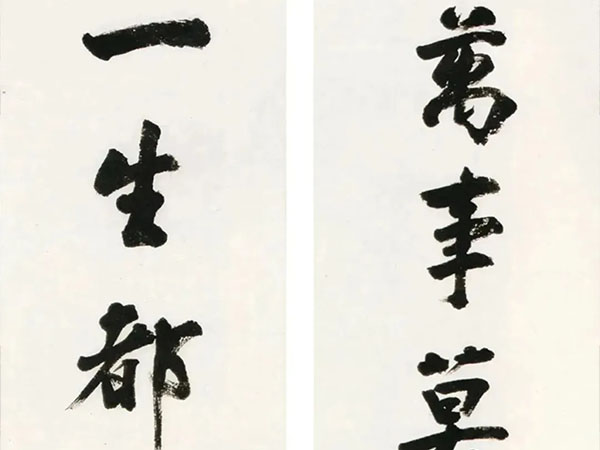 萬事莫
一生都